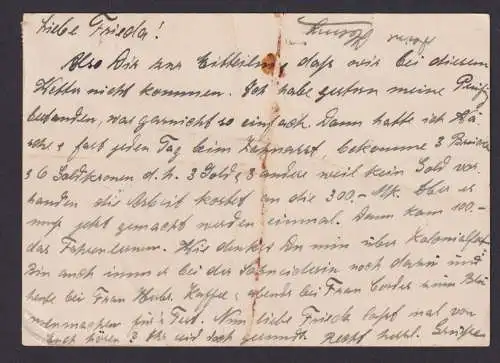 Liebe Frieda!
Also Dir zur Mitteilung, daß wir bei diesem
Wetter nicht kommen. Ich habe gestern meine Prüfg
bestanden, war garnicht so einfach. Dann hatte ich
fast jeden Tag beim Zahnarzt, bekomme 3 Brücken
6 Goldkronen d.h. 3 Gold, 3 andere weil kein Gold vor-
handen die Arbeit kostet an die 300.- Mk. Aber es
muß jetzt gemacht werden einmal. Dann kam 100.-
das Fahrenlernen. Wie denkst Du nun über
Bin auch immer bei der Schneiderin noch dazu und
heute bei Frau Kaffee, abends bei Frau zum
menmachen für's Fest. Nun liebe Frieda laßt mal von
Euch hören und gesund. Recht herzl.